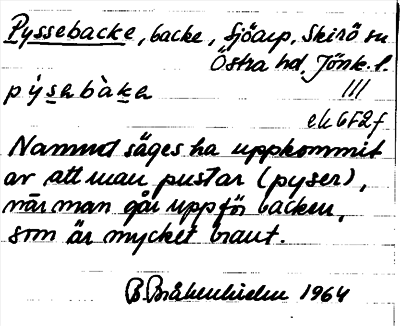 Pyssebacke, backe, Sjöarp, Skirö sn
Östra hd, Jönk. l.
pýsebàkə
///
ek 6F2f
Namnet säges ha uppkommit
av att man pustar (pyser),
när man går uppför backen,
som är mycket brant.
B. Bråkenhielm 1964